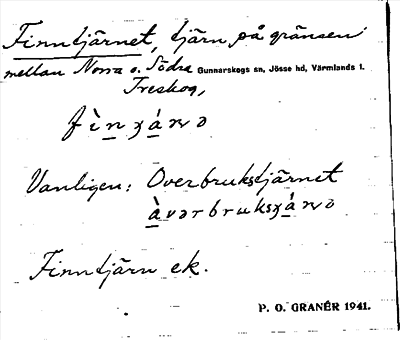 Finntjärnet, tjärn på gränsen
mellan Norra o. Södra Gunnarskogs sn, Jösse hd, Värmlands l.
Treskog,
Vanligen: Overbrukstjärnet
Finntjärn ek.
P. O. GRANÉR 1941.